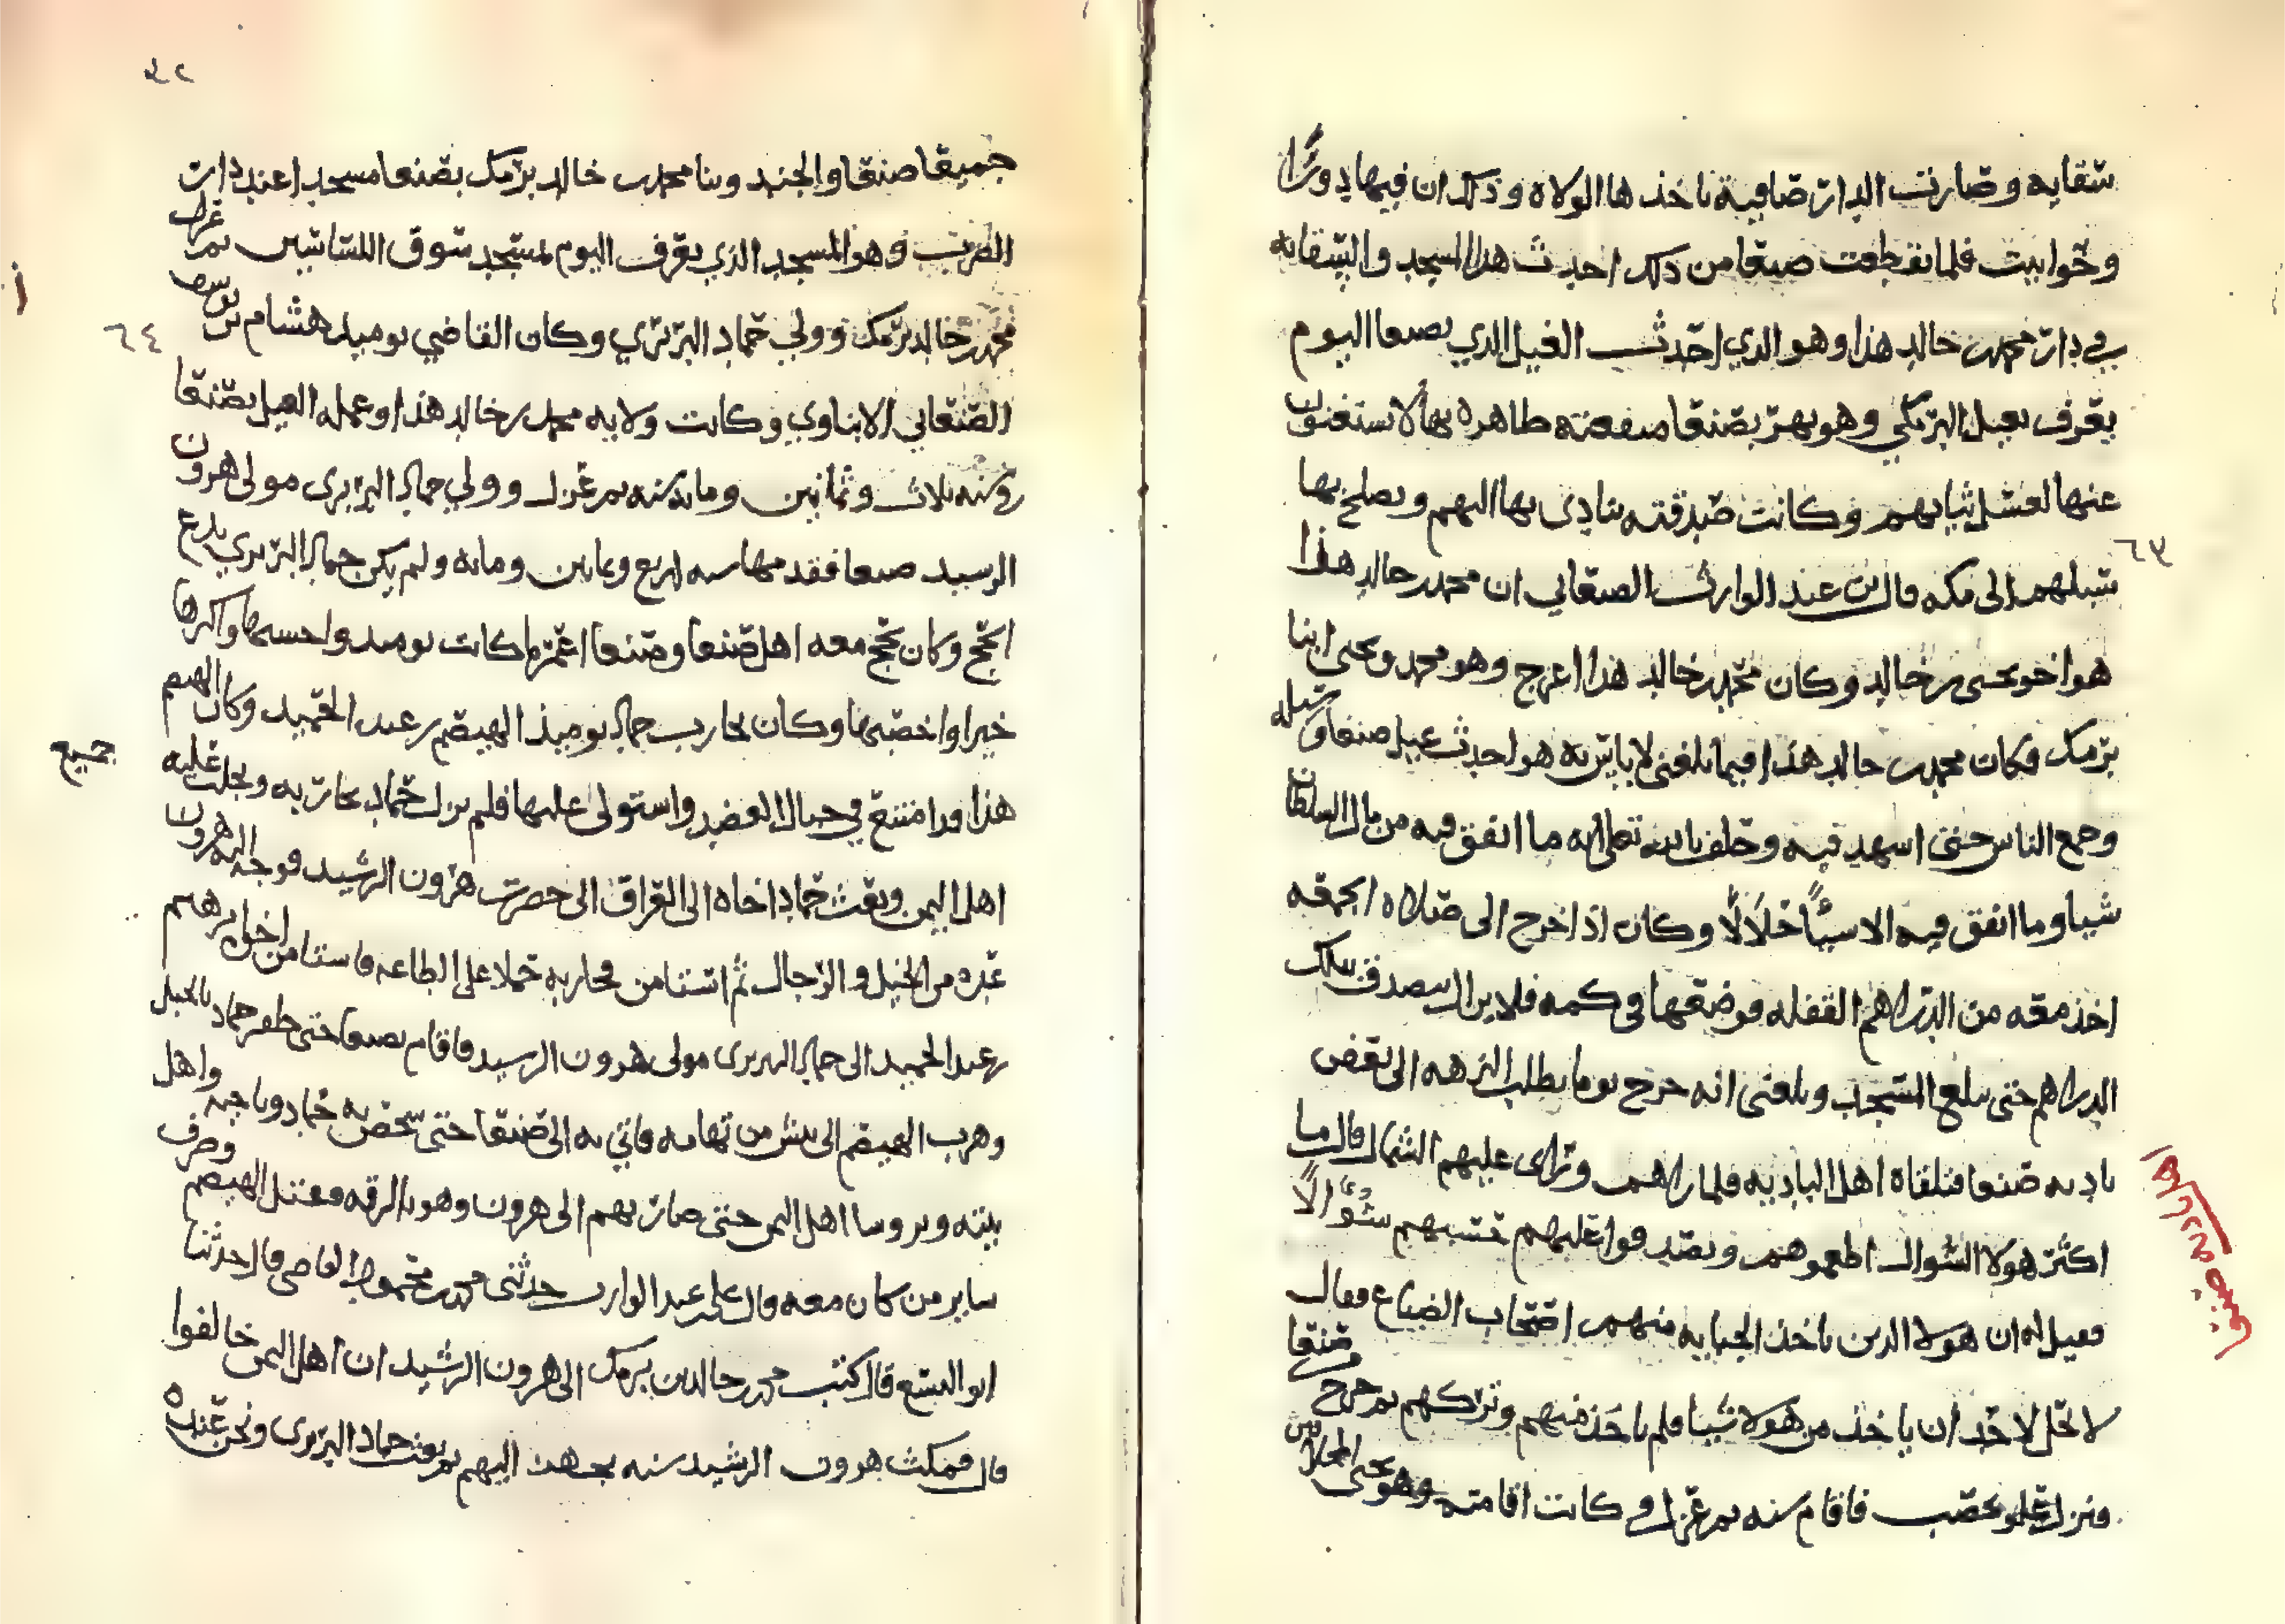 سقايه وصارت الدار صافية ياخذها الولاه وذلك ان فيها دورًا
وحوانيت فلما تقطعت صنعا من ذلك احدث هذا المسجد والسقايه
في دار محمد بن خالد هذا وهو الذي احدث الغيل الذي بصنعا اليوم
يعرف بغيل البرمكي وهو نهر بصنعا منفعته ظاهره بها لا يستغنون
عنها لغسل ثيابهم وكانت صدقته ينادى بها اليهم ويصلح بها
سبلهم الى مكه قال بن عبد الوارث الصنعاني ان محمد بن خالد هذا
هو اخو يحيى بن خالد وكان محمد بن خالد هذا اعرج وهو محمد ويحيى ابنا
برمك وكان محمد بن خالد هذا فيما بلغني لا باس به هو احدث غيل صنعا وسبله
وجمع الناس حتى اشهد فيه وحلف بالله تعالى انه ما انفق فيه من مال السلطان
شيا وما انفق فيه الا شيئًا حلالًا وكان اذا خرج الى صلاه الجمعه
اخذ معه من الدراهم القفله فوضعها في كمه فلا يزال يتصدق بتلك
الدراهم حتى يبلغ المسجد وبلغني انه خرج يوما يطلب النزهه الى بعض
باديه صنعا فتلقاه اهل الباديه فلما راهم وتراى عليهم الشمال قال ما
اكثر هولا السُّوال اطعموهم وتصدقوا عليهم تحسبهم سُوَّالًا
فقيل له ان هولا الذين ناخذ الجبايه منهم اصحاب الضياع فقال
لا يحل لاحد ان ياخذ من هولا شيا فلم ياخذ منهم وتركهم ثم خرج من صنعا
ونزل علو يحصب فاقام سنه ثم عزل وكانت اقامته وهو يجبي المخلافين
٦٣
٤٢
جميعا صنعا والجند وبنا محمد بن خالد برمك بصنعا مسجد اعند دار
الضرب وهو المسجد الذي يعرف اليوم بمسجد سوق اللساسين ثم عزل
محمد بن خالد برمك وولي حماد البربري وكان القاضي يوميذ هشام بن يوسف
الصنعاني الابناوي وكانت ولايه محمد بن خالد هذا وعمله الغيل بصنعا
في سنه ثلاث وثمانين ومايه سنه ثم عزل وولي حماد البربرى مولى هرون
الرشيد صنعا فقدمها سنه اربع وثمانين ومايه ولم يكن حماد البربري يدع
الحج وكان يحج معه اهل صنعا وصنعا اعمر ما كانت يوميذ واحسنها واكثرها
خيرا واخصبها وكان يحارب حماد يوميذ الهيصم بن عبد الحميد وكان الهيصم
هذا قد امتنع في جبال العضد واستولى عليها فلم يزل حماد يحاربه ويجلب عليه
اهل اليمن وبعث حماد اخاه الى العراق الى حضرت هرون الرشيد فوجه اليه هرون
عده من الخيل والرجال ثم استامن محاربه حملا على الطاعه فاستامن اخل ابرهيم
بن عبد الحميد الى حماد البربرى مولى هرون الرشيد فاقام بصنعا حتى ظفر حماد بالجبل
وهرب الهيصم الى بيش من تهامه فاتي به الى صنعا حتى شخص به حماد وباخيه واهل
بيته وبروسا اهل اليمن حتى صار بهم الى هرون وهو بالرقه فقتل الهيصم وصرف
ساير من كان معه قال علي بن عبد الوارث حدثنى محمد بن محمود القاضي قال حدثنا
ابو اليسع قال كتب محمد بن خالد بن برمك الى هرون الرشيد ان اهل اليمن خالفوا
قال فمكث هرون الرشيد سنه يجهد اليهم ثم بعث حماد البربرى ونحن عنده
٦٤
جميع